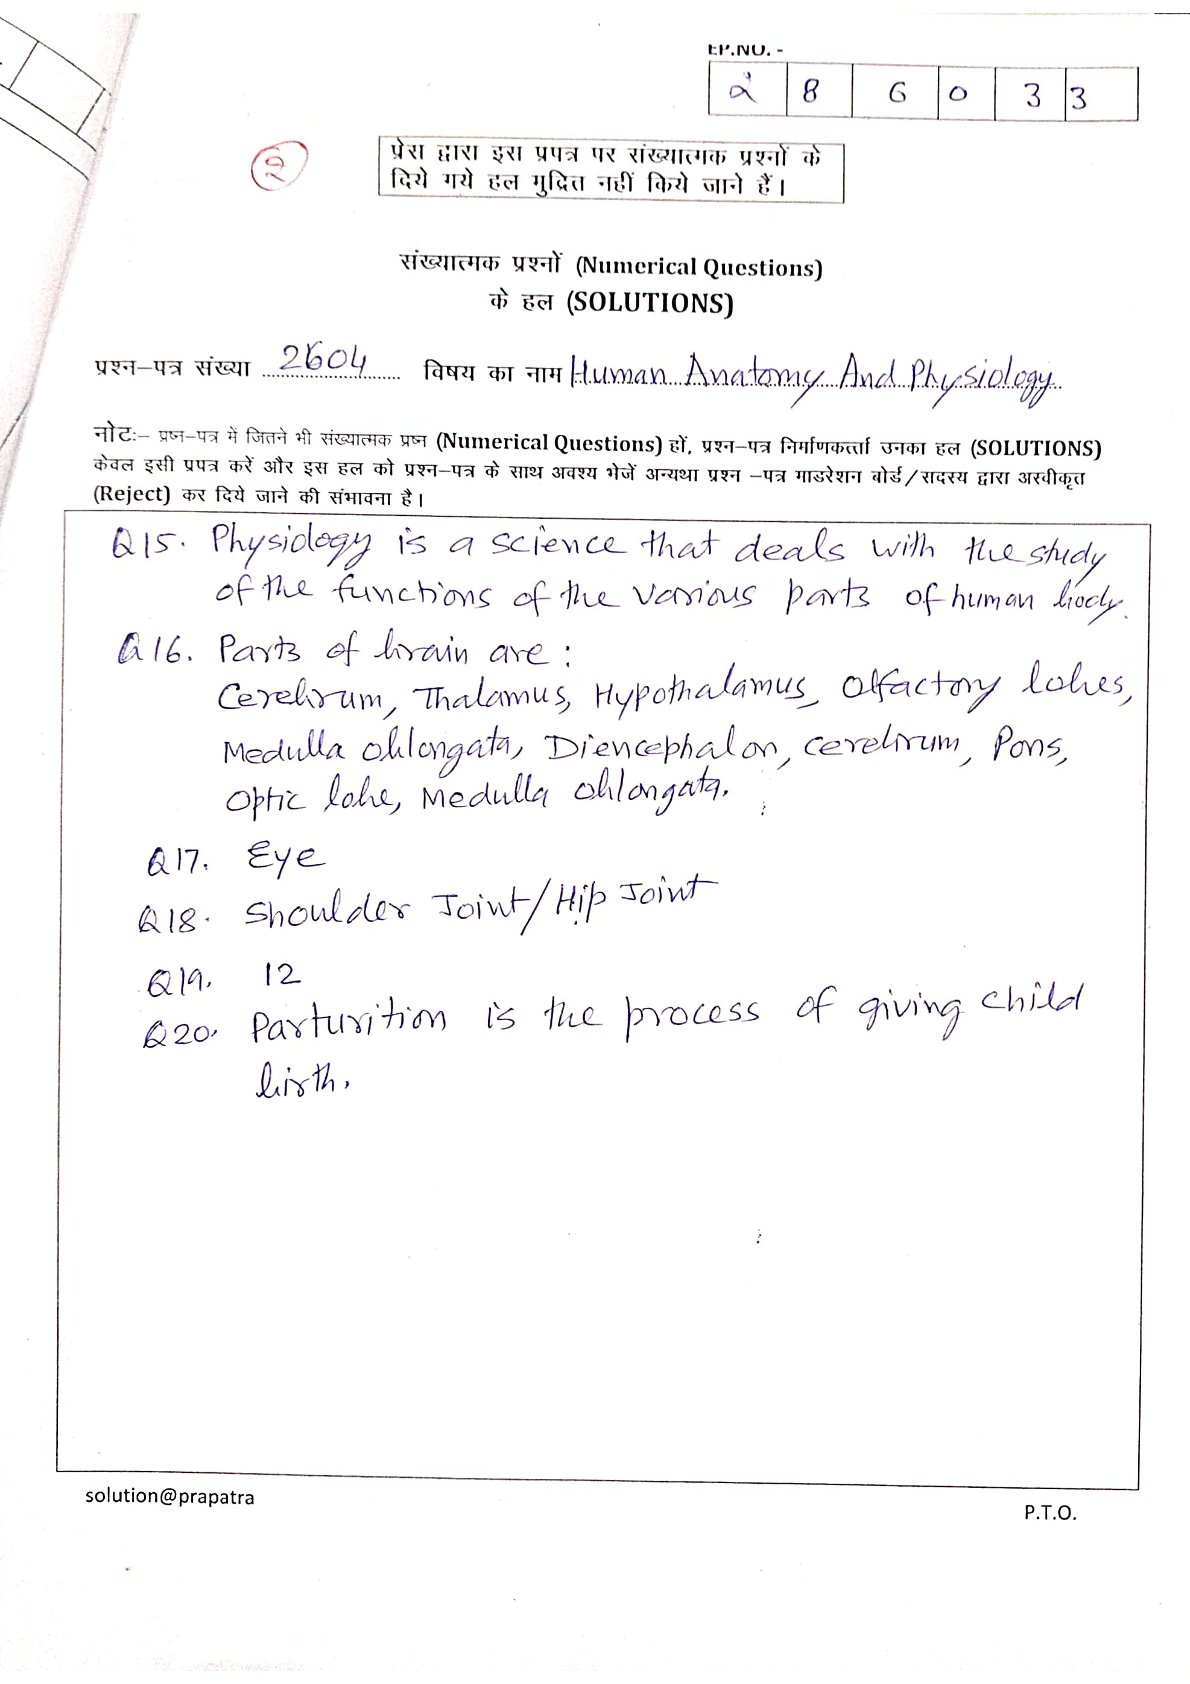 EP.NO. -
2 8 6 0 3 3
2
प्रेस द्वारा इस प्रपत्र पर संख्यात्मक प्रश्नों के
दिये गये हल मुद्रित नहीं किये जाने हैं।
संख्यात्मक प्रश्नों (Numerical Questions)
के हल (SOLUTIONS)
प्रश्न-पत्र संख्या 2604 विषय का नाम Human Anatomy And Physiology
नोटः- प्रष्न-पत्र में जितने भी संख्यात्मक प्रष्न (Numerical Questions) हों, प्रश्न-पत्र निर्माणकर्त्ता उनका हल (SOLUTIONS)
केवल इसी प्रपत्र करें और इस हल को प्रश्न-पत्र के साथ अवश्य भेजें अन्यथा प्रश्न -पत्र माडरेशन बोर्ड/सदस्य द्वारा अस्वीकृत
(Reject) कर दिये जाने की संभावना है।
Q15. Physiology is a science that deals with the study
of the functions of the various parts of human body.
Q16. Parts of brain are:
Cerebrum, Thalamus, Hypothalamus, Olfactory lobes,
Medulla oblongata, Diencephalon, cerebrum, Pons,
Optic lobe, Medulla oblongata.
Q17. Eye
Q18. Shoulder Joint/Hip Joint
Q19. 12
Q20. Parturition is the process of giving child
birth.
solution@prapatra
P.T.O.